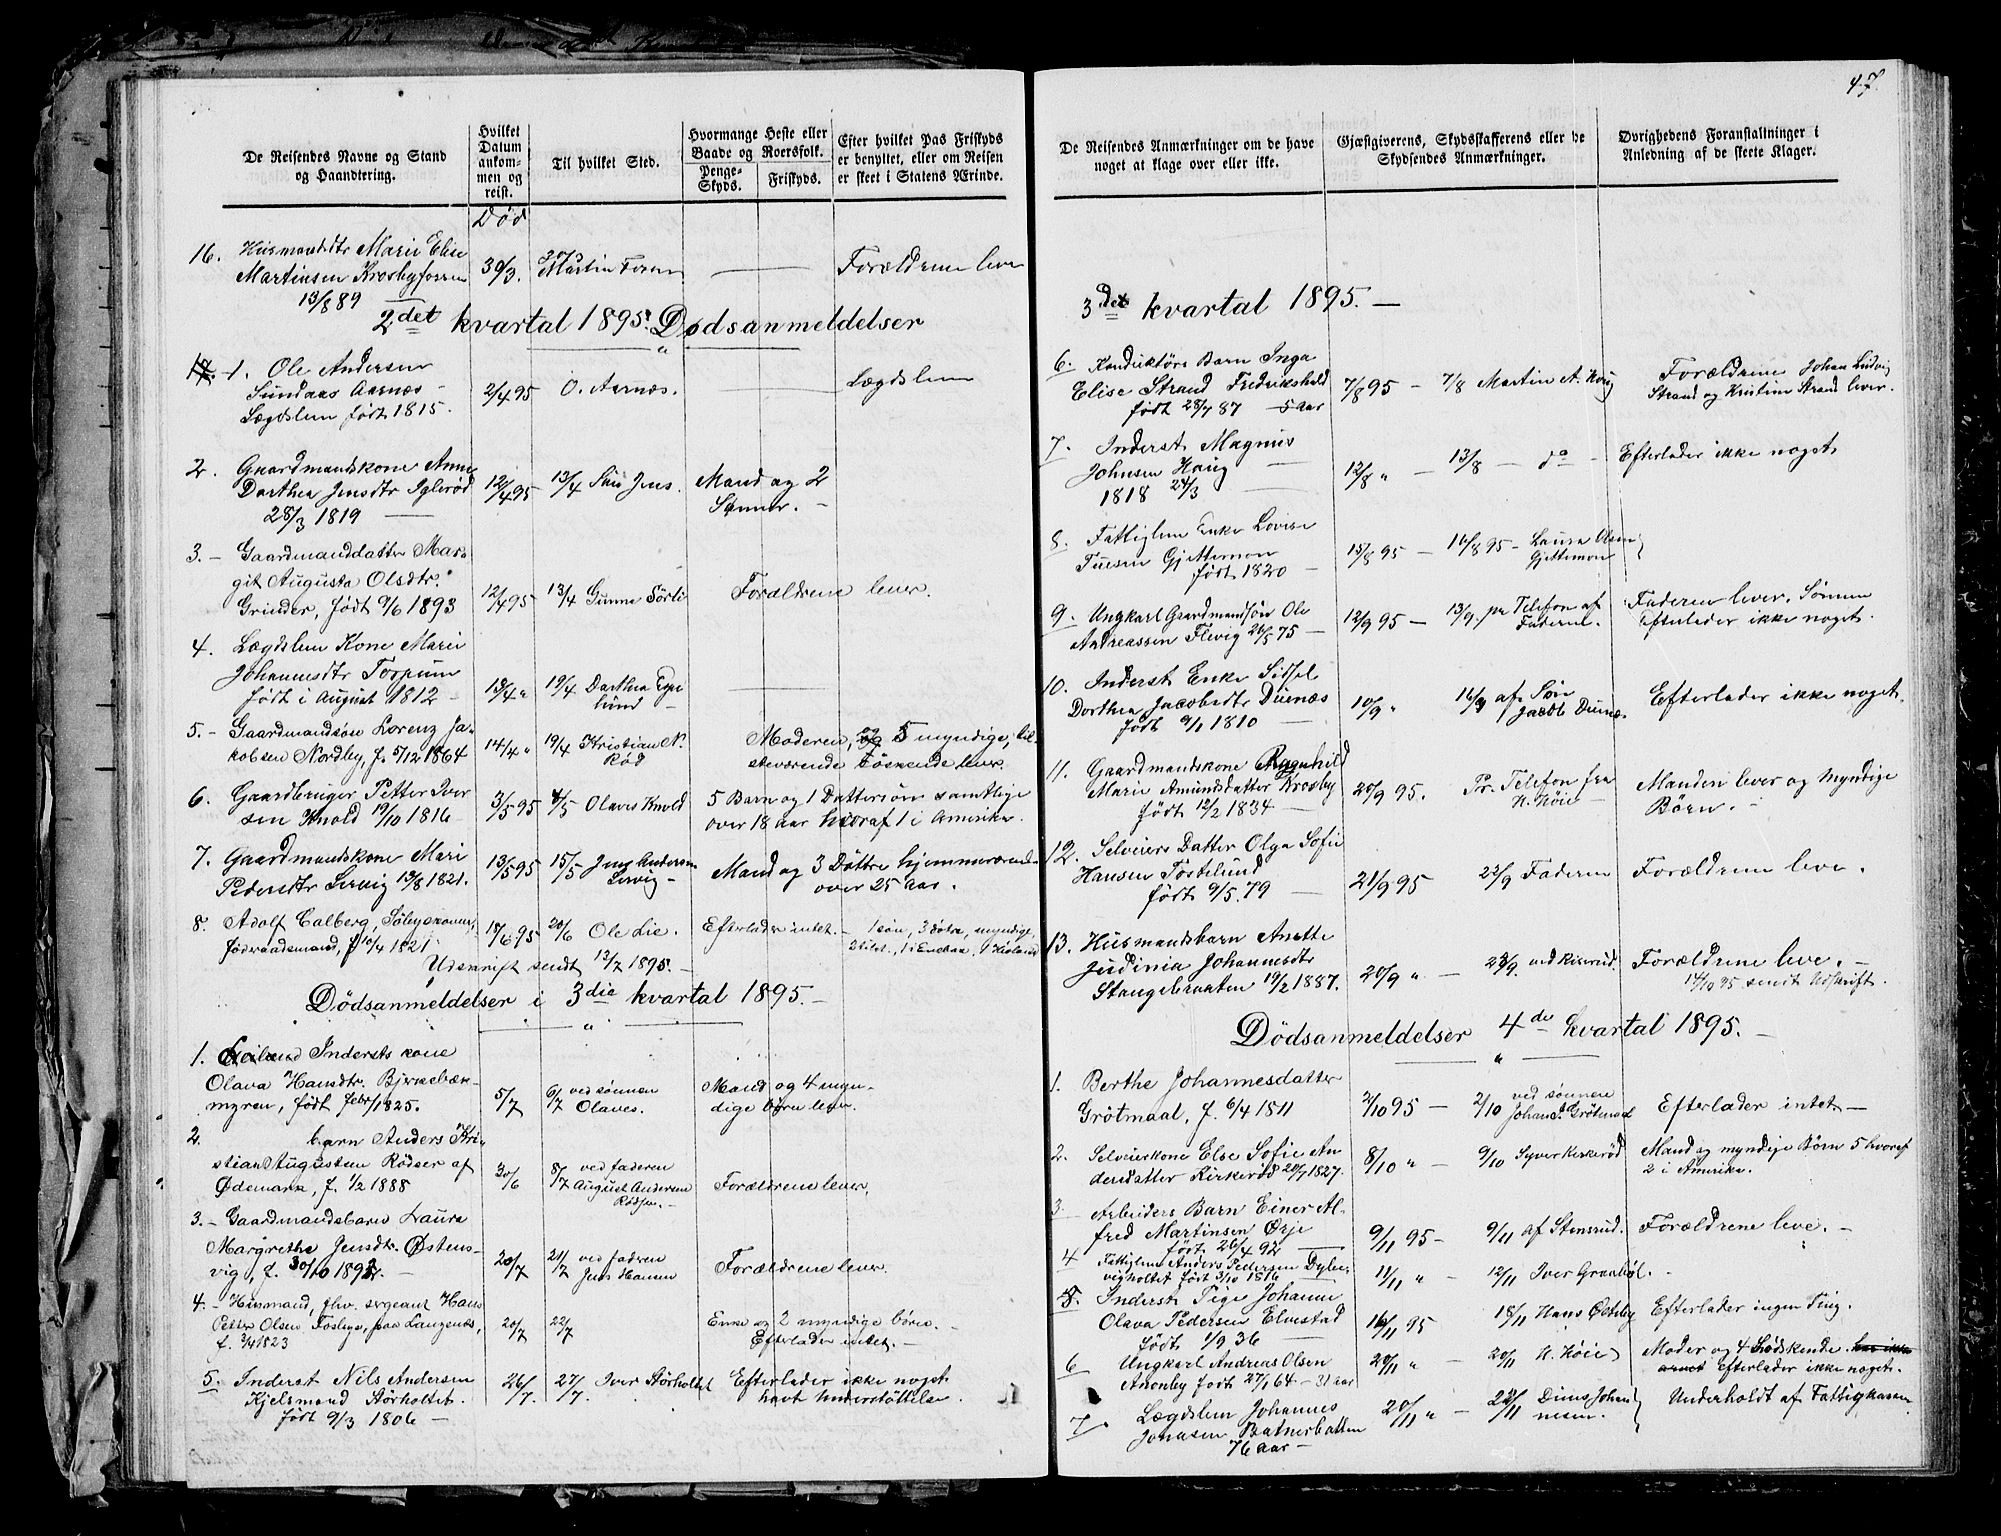 47.
De Reisendes Navne og Stand
og Haandtering.
Hvilket
Datum
ankom-
men og
reist.
Til hvilket Sted.
Hvormange Heste eller
Baade og Roersfolk.
Penge-
Skyds.
Friskyds.
Efter hvilket Pas Friskyds
er benyttet, eller om Reisen
er skeet i Statens Ærinde.
Død
16. Husmandsdtr Marie Elise
Martinsen Krosbyforren
13/8 89
30/3.
30/3
Martin Foren
Forældrene lever
2det kvartal 1895. Dødsanmeldelser
1. Ole Andersen
Sundaas Aarnæs -
Lægdslem født 1815.
2/4 95 O. Aarnæs.
Lægdslem
2. Gaardmandskone Anne
Dorthea Jensdtr Iglerød
28/3 1819
12/4 95 13/4 Jens. Mand og 2
Sønner. -
3. - Gaardmanddatter Mar-
git Augusta Olsdtr.
Grinder, født 9/6 1893
12/4 95 13/4 Gunne Sörli Forældrene lever.
4. Lægdslem Kone Marie
Johannesdtr Torpum
født i August 1812 -
13/4 " 19/4 Dorthea
5. - Gaardmandsøn Lorenz Ja-
kobsen Nordby, f. 5/12 1864
14/4 " 19/4 Kristian N.
Rød
Moderen, og 5 myndige, til-
steværende söskende lever.
6. Gaardbruger Petter Iver
sen Knold 19/10 1816 -
3/5 95 4/5 Olaves Knold 5 Barn og 1 Dattersøn samtlige
over 18 aar hvoraf 1 i Amerika.
7. Gaardmandskone Mari
Pedersdtr Lervig 13/8 1821.
13/5 95 15/5 Jens Andersen
Lervig - Mand og 3 Døttre hjemmeværend-
over 25 aar.
8. Adolf Calberg, Søbyskoven,
föderaadsmand, f. 10/4 1821
18/6 95 20/6 Ole Lie. Efterlader intet. - 1 søn, 3 döttre, myndige,
Udskrift sendt 12/7 1895. -
Dödsanmeldelser i 3die kvartal 1895. -
1. Indersts kone
Olava Hansdtr. Bjerkebæk-
myren, født febr/1825.
5/7 6/7 ved sønnen
Olaves. Mand og 4 myn-
dige börn lever.
2. barn Anders Kri-
stian Augustsen Rödser af
Ødemark, f. 1/2 1888
30/6 8/7 ved faderen
August Andersen
Rödsen. - Forældrene lever,
3. - Gaardmandsbarn Laura
Margrethe Jensdtr. Østens-
vig, f. 30/10 1892. -
20/7 21/7 ved faderen
Jens Hansen Forældrene lever.
4. - Husmand, fhv. sergeant Hans
Petter Olsen Fosbye, paa Langenæs,
f. 3/4 1823
20/7 22/7 Enke og 2 myndige börn. -
Efterlader intet. -
5. Inderst Nils Andersen
Kjelsmond Störholtet.
født 9/3 1806 -
26/7. 27/7. Iver Störholtet Efterlader ikke noget
havt Understöttelse.
De Reisendes Anmærkninger om de have
noget at klage over eller ikke.
Gjæstgiverens, Skydsskafferens eller de
Skydsendes Anmærkninger.
Øvrighedens Foranstaltninger i
Anledning af de skeete Klager.
3det kvartal 1895. -
6. Konduktörs Barn Inga
Elise Strand Fredrikshald
født 28/7 87 - 8 aar
7/8 95 - 7/8 Martin A. Houg Forældrene Johan Ludvig
Strand og Kristine Strand lever.
7. Inderst Magnus
Johnsen Haug
1818 24/3
12/8 " - 13/8 - do - Efterlader ikke noget
8. Fattiglem Enke Lovise
Tuesen Gjettemon
født 1820 -
15/8 95 - 16/8 95 - Laura Olsen
Gjettemon
9. Ungkarl Gaardmandsøn Ole
Andreassen Flevig 21/5 75 -
12/9 95 - 13/9. pr Telefon af
Faderen. Faderen lever. Sönnen
efterlader ikke noget.
10. Inderst Enke Sidsel
Dorthea Jacobsdtr Diunæs
født 9/1 1810 -
10/9 " 16/9 af Søn
Jacob Diunæs Efterlader ikke noget.
11. Gaardmandskone Ragnhild
Marie Amundsdatter Krosby
født 12/2 1834 -
20/9 95. Pr. Telefon fra
H. Höie - Manden lever og Myndige
Börn. -
12. Selveiers Datter Olga Sofie
Hansen Töstelund
født 9/5. 79 -
21/9 95 22/9 Faderen Forældrene leve.
13. Husmandsbarn Anette
Judinia Johannesdtr
Stangebraaten 19/2 1887.
20/9 " - 23/9. ved Riserud. Forældrene leve. -
14/10 95 sendt Udskrift.
Dödsanmeldelser 4de kvartal 1895. -
1. Berthe Johannesdatter
Grötmaal, f. 6/4 1811
2/10 95 - 2/10 ved sønnen
Johans. Grötmaal Efterlader intet -
2. Selveierkone Else Sofie An
dersdatter Kirkerød 20/7 1827.
8/10 " - 9/10 Syver Kirkerød Mand og myndige Börn 5 hvoraf
2 i Amerika.
3 Arbeiders Barn Einer Al-
fred Martinsen Ørje
født 26/4 92
9/11 95 - 9/11 af Stensrud. Forældrene leve. -
4 Fattiglem Anders Pedersen
født 3/10 1816
11/11 " - 12/11 Iver Granböl.
5. Inderst Pige Johanne
Olava Pedersen Elvestad
født 1/9 36
16/11 95 18/11 Hans Østeby Efterlader ingen Ting.
6 Ungkarl Andreas Olsen
Anonby født 27/1 64 - 31 aar
20/11 " - 20/11 H. Höie Moder og 4 Södskende har ikke
arvet efterlader ikke noget.
7. Lægdslem Johannes
Jonasen Batnerbatten
76 aar -
20/11 " - 22/11 Dinus Johan
nesen. Underholdt af Fattigkassen